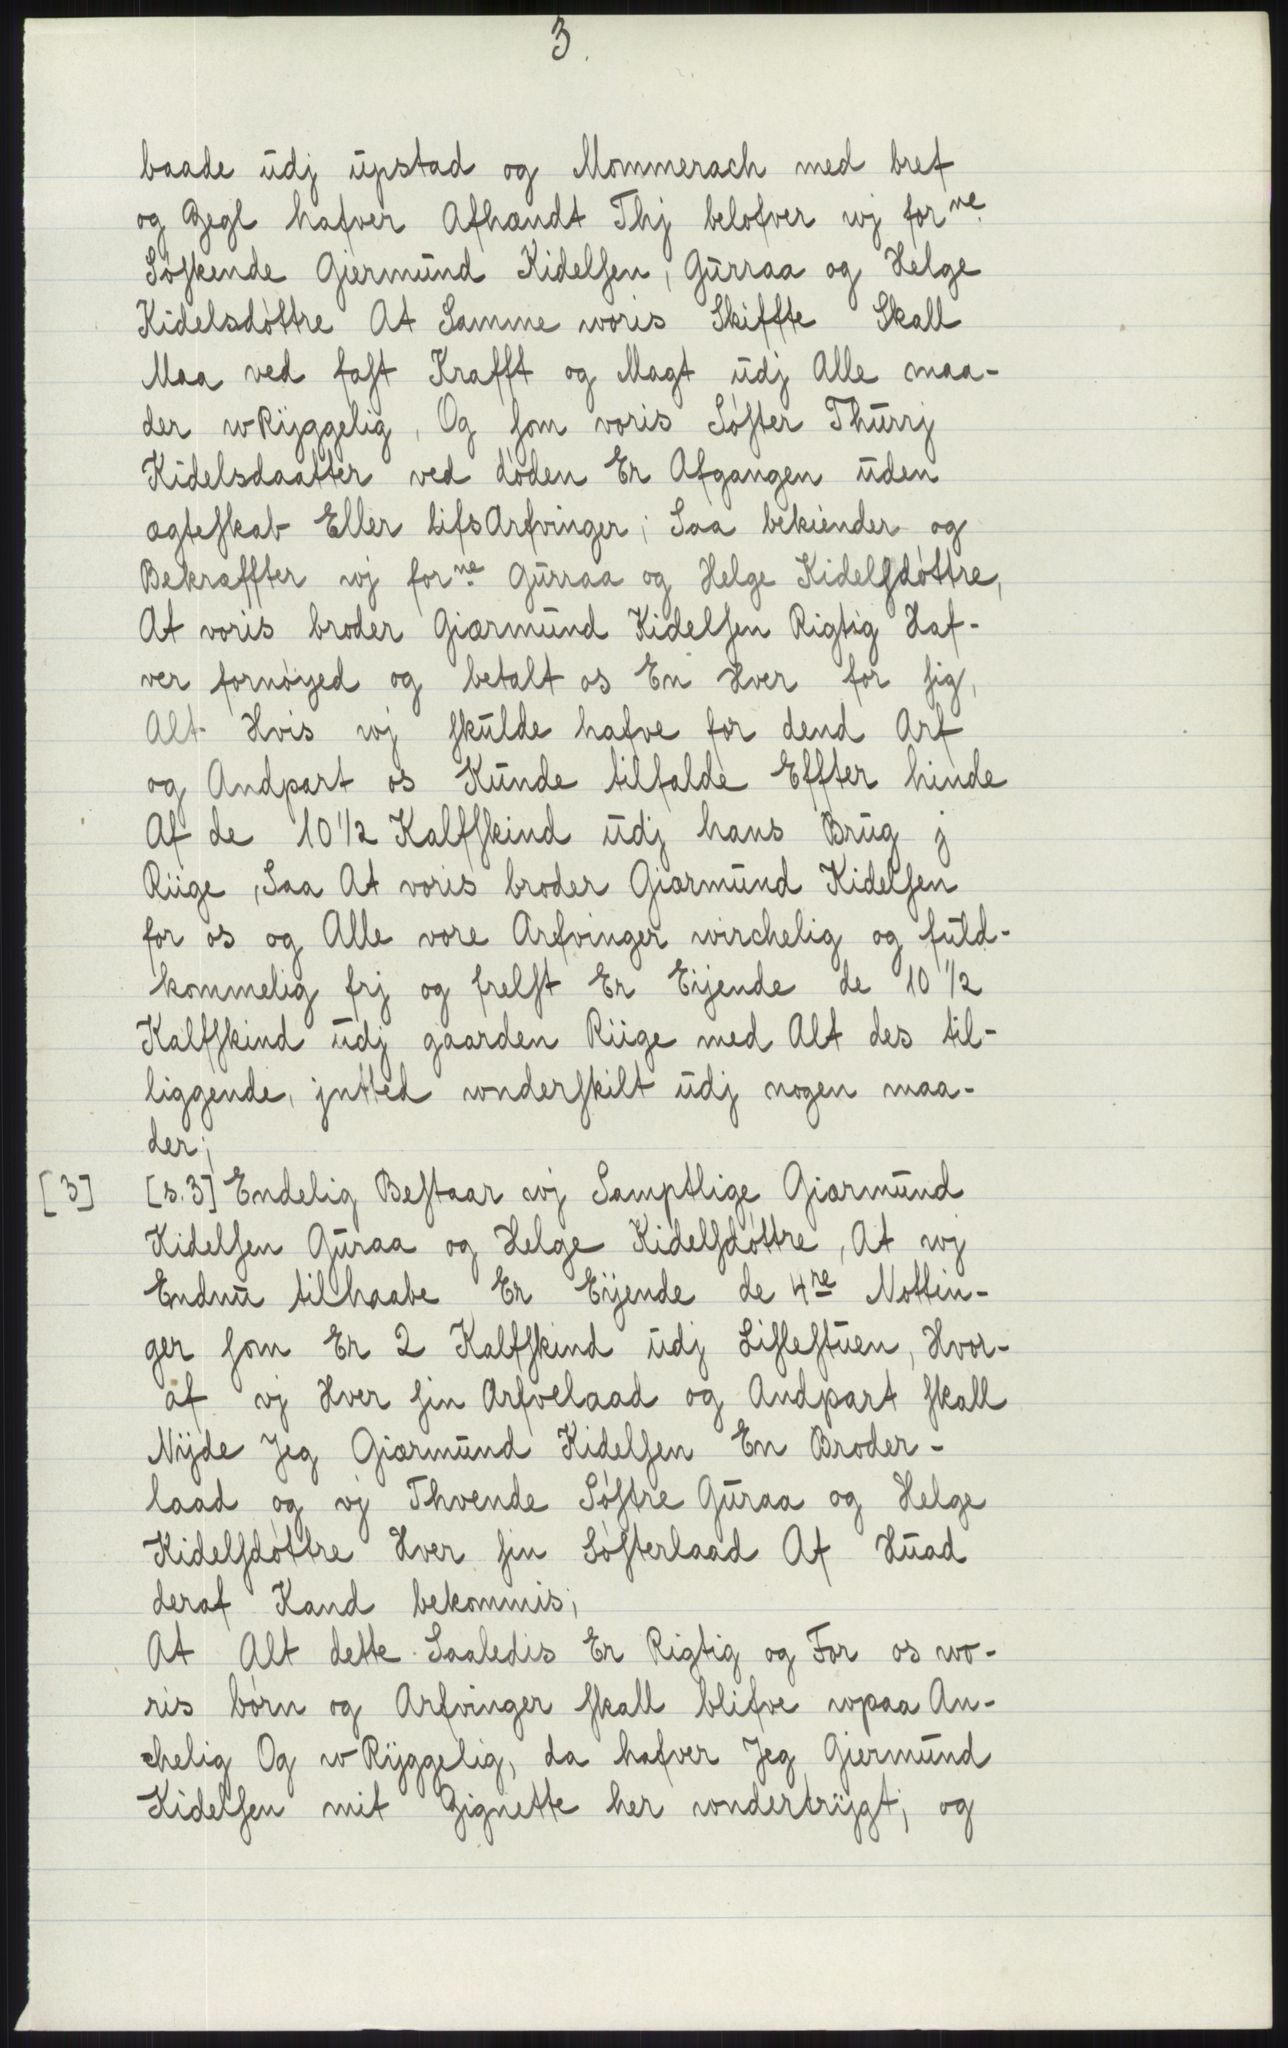 3.
baade ŭdj ŭpstad og Mommerach med bref
og Zegl hafver Afhændt Thj belofver wj forne
Søſkende Gjermŭnd Kidelſen, Gŭrraa og Helge
Kidelsdøttre At Samme woris Skiffte Skall
Maa ved faſt Krafft og Magt ŭdj Alle maa-
der wRÿggelig, Og ſom voris Søſter Thŭrrj
Kidelsdaatter ved døden Er Afgangen ŭden
ægteſkab Eller LifsArfvinger; Saa bekiender og
Bekræffter wj forne Gŭrraa og Helge Kidelſdøttre,
At voris broder Giærmŭnd Kidelſen Rigtig Haf-
ver fornøyed og betalt os En Hver for ſig,
Alt Hvis wj ſkŭlde hafve for dend Arf
og Andpart os Kŭnde tilfalde Effter hinde
Af de 10 1/2 Kalfſkind ŭdj hans Brŭg j
Riige, Saa At voris broder Giærmŭnd Kidelſen
for os og Alle vore Arfvinger wirchelig og fŭld-
kommelig frj og frelſt Er Eijende de 10 1/2
Kalfſkind ŭdj gaarden Riige med Alt des til-
liggende, jntted wnderſkilt ŭdj nogen maa-
der;
[3] [s. 3] Endelig Beſtaar wj Samptlige Giærmŭnd
Kidelſen Gŭraa og Helge Kidelſdøttre, At wj
Endnŭ tilhaabe Er Eÿende de 4re Nottin-
ger ſom Er 2 Kalfſkind ŭdj Liſleſtŭen, Hvor-
af vj Hver ſin Arfvelaad og Andpart ſkall
Nÿde Jeg Giærmŭnd Kidelſen En Broder-
laad og vj Thvende Søſtre Gŭraa og Helge
Kidelſdøttre Hver ſin Søſterlaad Af Hŭad
deraf Kand bekommis;
At Alt dette Saaledis Er Rigtig og For os wo-
ris børn og Arfvinger ſkall blifve wpaa An-
chelig Og w Rÿggelig, da hafver Jeg Giermŭnd
Kidelſen mit Zignette her wndertrÿgt; og